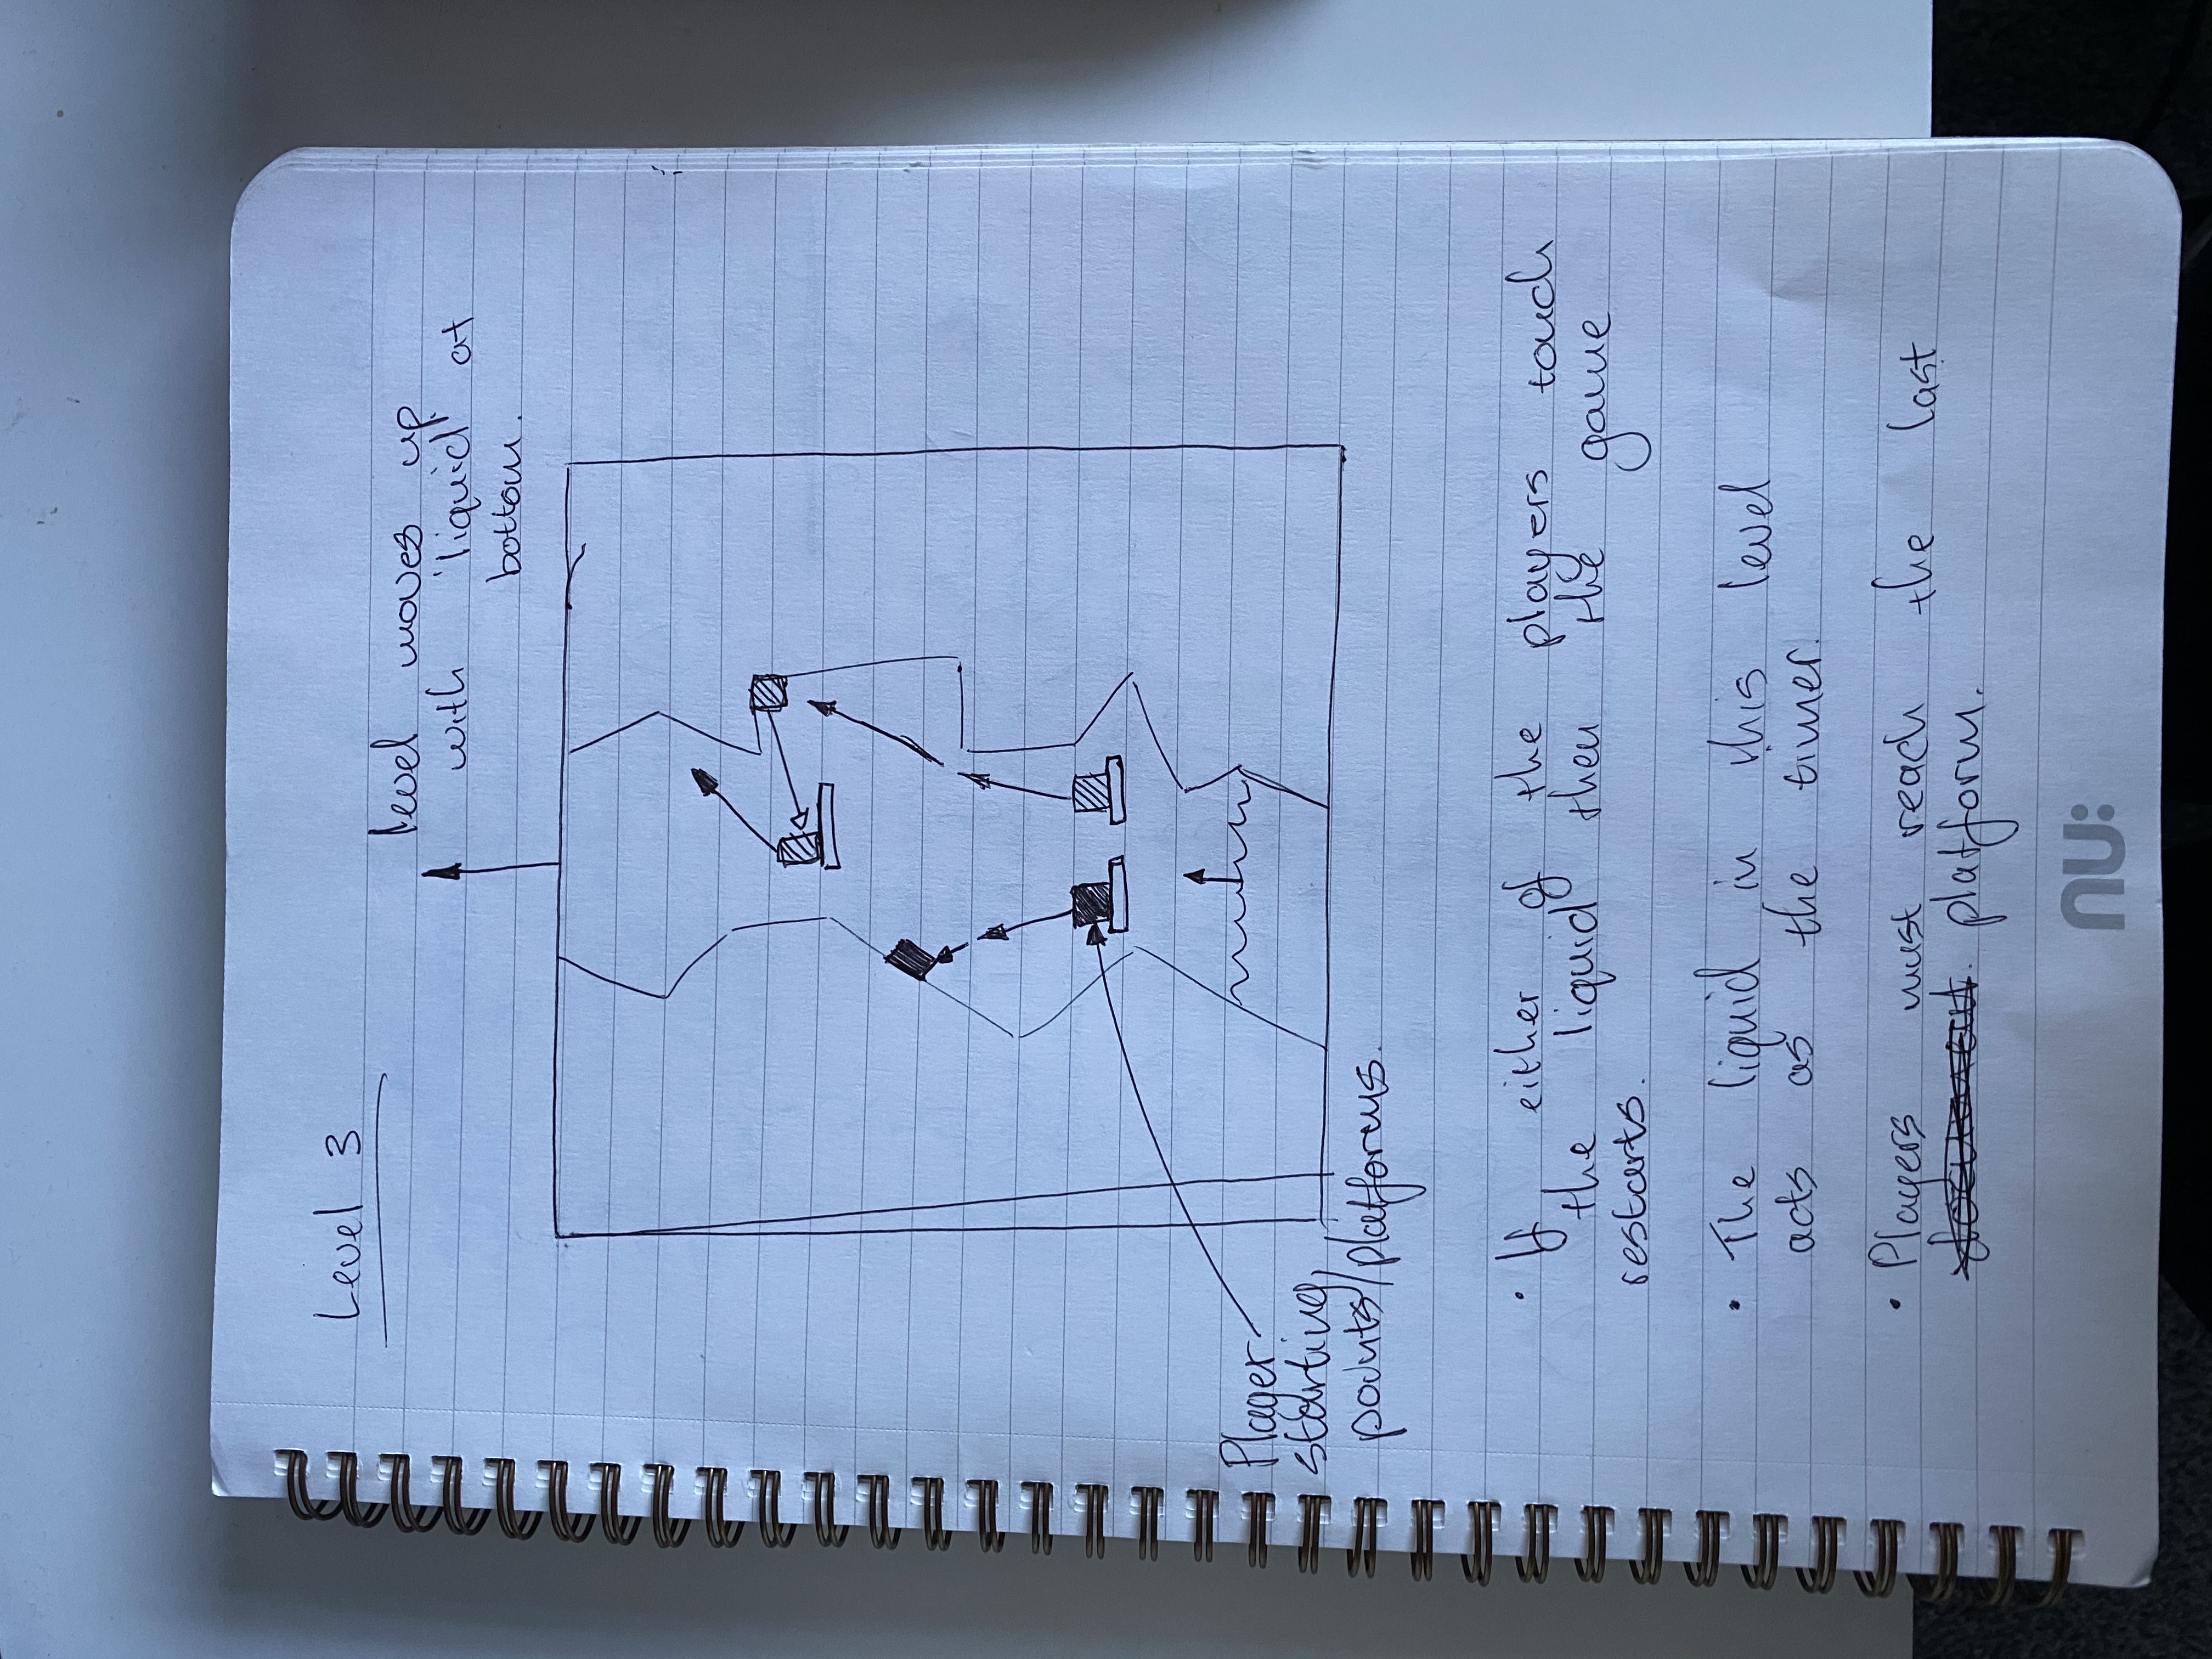 Level 3
level moves up
with 'liquid' at
bottom.
Player
starting
points/platforms.
• If either of the players touch
the liquid then the game
restarts.
• The liquid in this level
acts as the timer.
• Players must reach the last
platform.
nu: